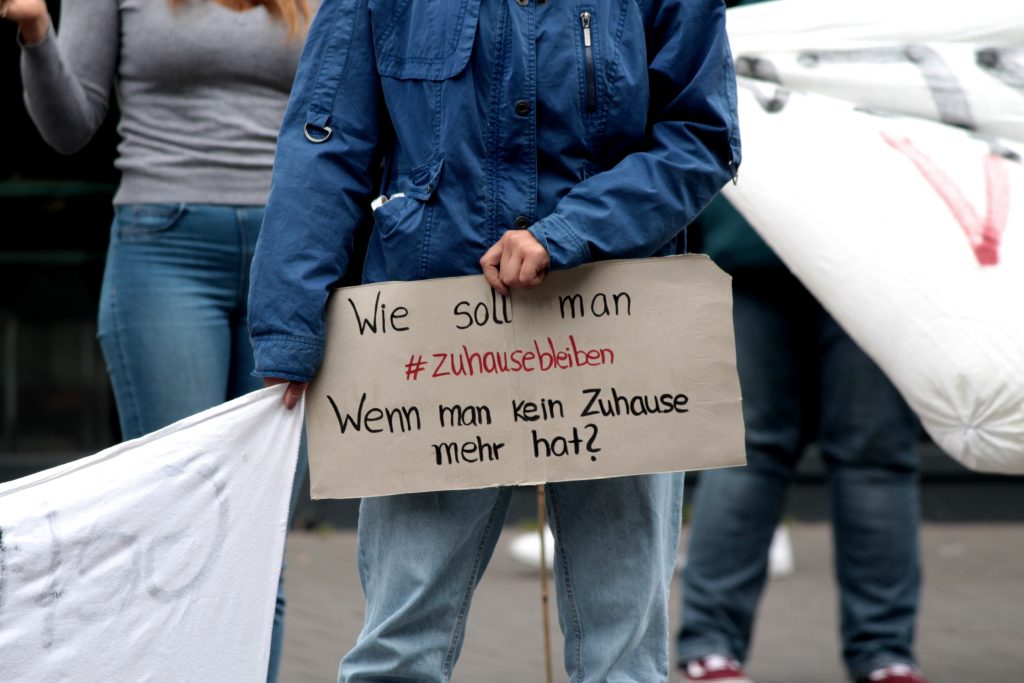 Wie soll man
#zuhausebleiben
Wenn man kein Zuhause
mehr hat?